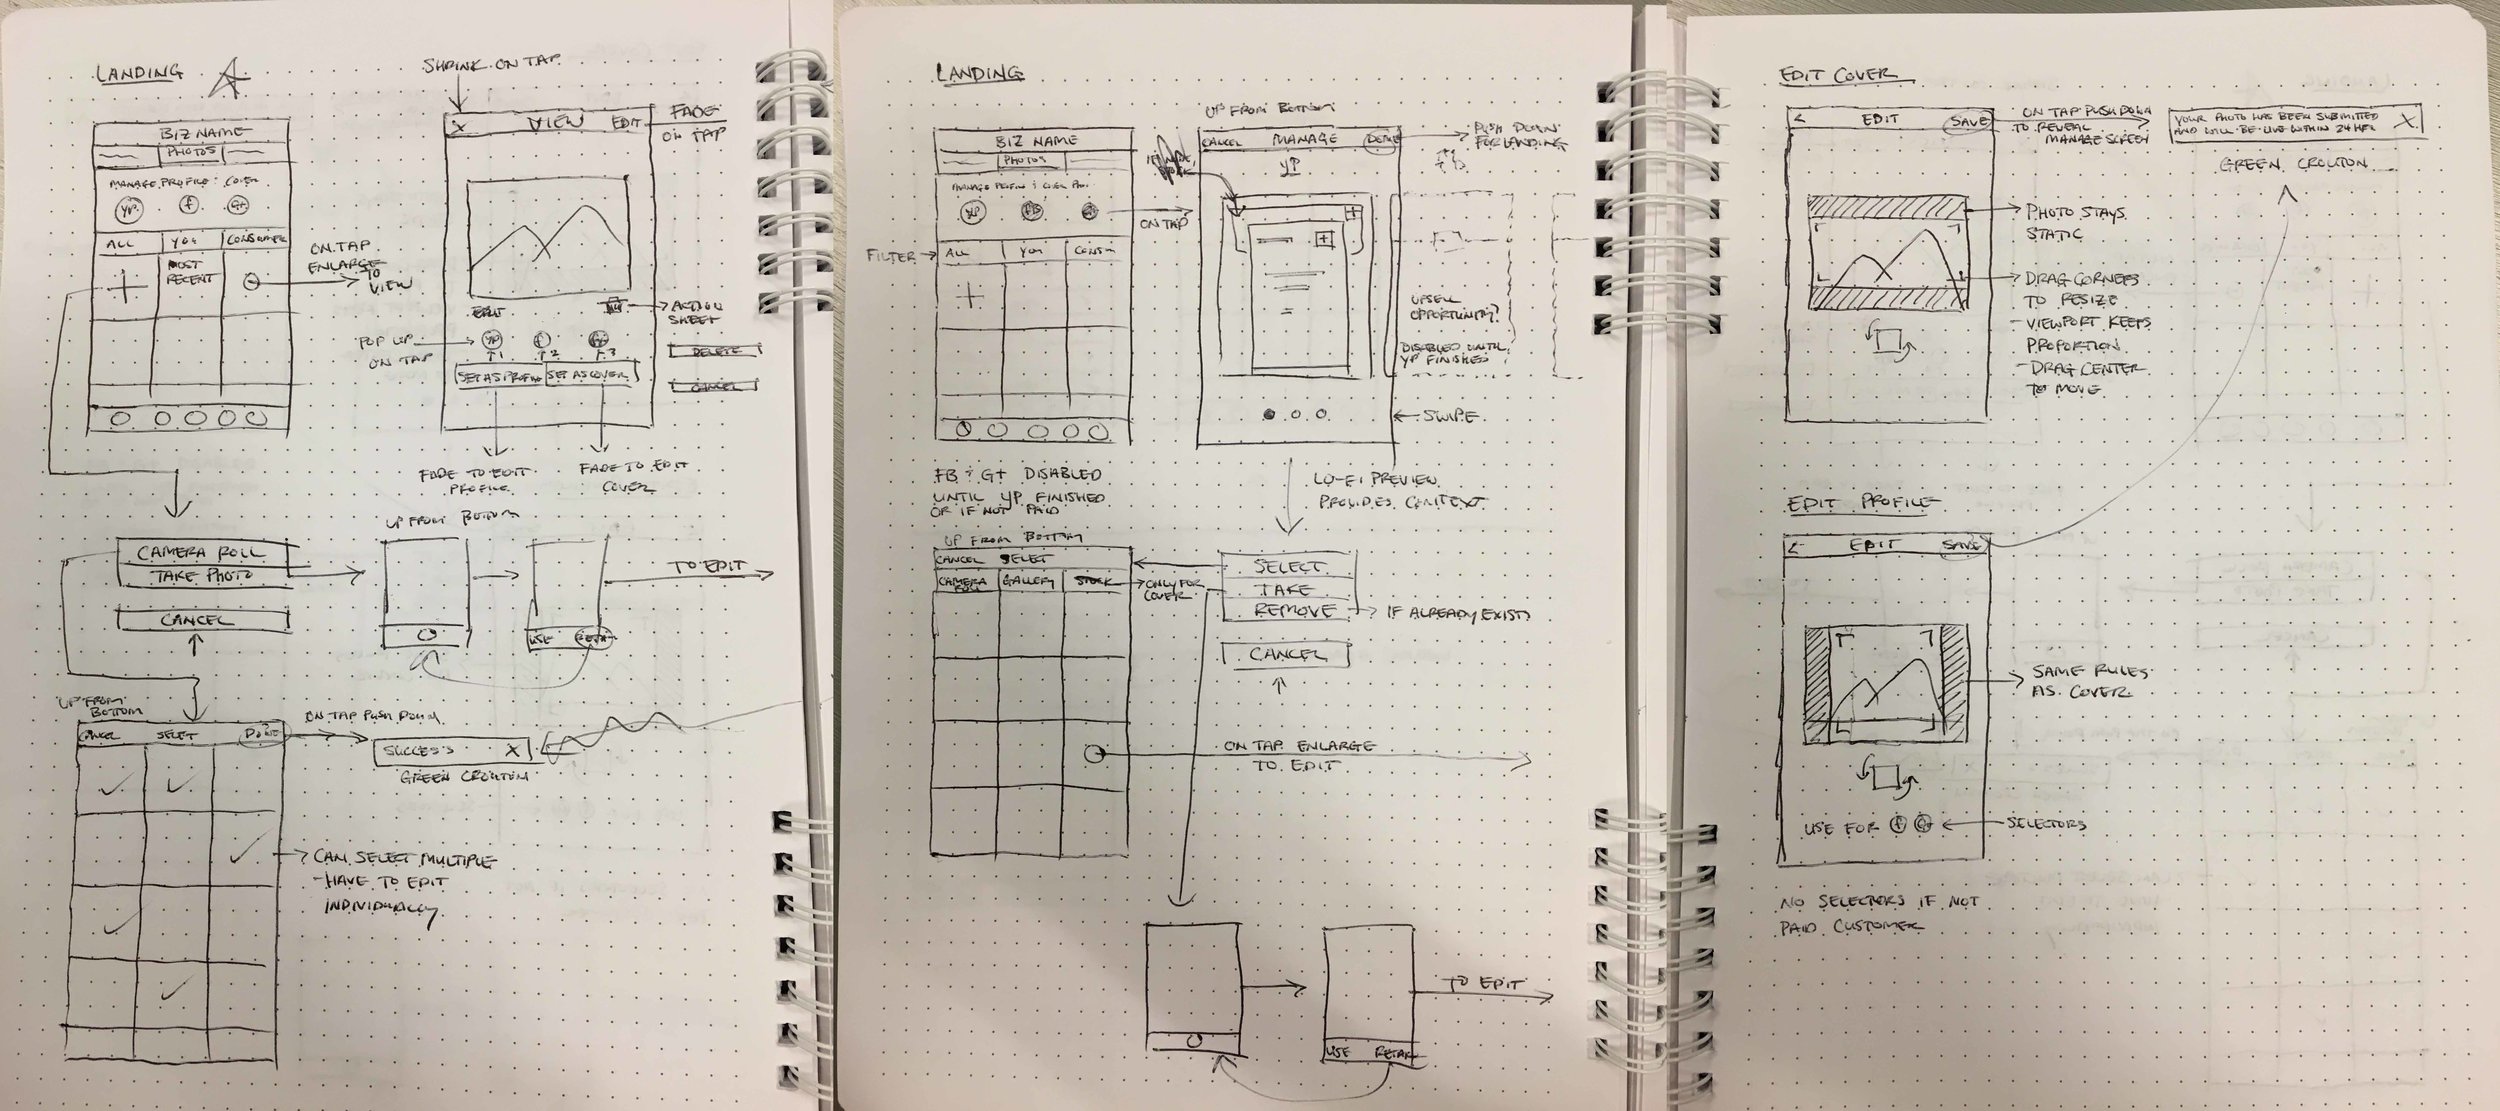 LANDING
SHRINK ON TAP
BIZ NAME
PHOTOS
MANAGE PROFILE & COVER
YP f G+
ALL YOU CONSUMER
MOST
RECENT
ON TAP
ENLARGE
TO
VIEW
X VIEW EDIT
FADE
ON TAP
EDIT
ACTION
SHEET
POP UP
ON TAP
YP f G+
↑1 ↑2 ↑3
SET AS PROFILE SET AS COVER
DELETE
CANCEL
FADE TO EDIT
PROFILE
FADE TO EDIT
COVER
CAMERA ROLL
TAKE PHOTO
CANCEL
UP FROM BOTTOM
USE RETAKE
TO EDIT
UP FROM
BOTTOM
CANCEL SELECT DONE
ON TAP PUSH DOWN
SUCCESS X
GREEN CROUTON
CAN SELECT MULTIPLE
-HAVE TO EDIT
INDIVIDUALLY
LANDING
BIZ NAME
PHOTOS
MANAGE PROFILE & COVER PHO.
YP FB G+
ON TAP
FILTER
ALL YOU CONSUM
UP FROM BOTTOM
CANCEL MANAGE DONE
YP
PUSH DOWN
FOR LANDING
UPSELL
OPPORTUNITY?
DISABLED UNTIL
YP FINISHED
SWIPE
FB & G+ DISABLED
UNTIL YP FINISHED
OR IF NOT PAID
LO-FI PREVIEW
PROVIDES CONTEXT
UP FROM BOTTOM
CANCEL SELECT
CAMERA
ROLL
GALLERY STOCK
ONLY FOR
COVER
SELECT
TAKE
REMOVE
IF ALREADY EXISTS
CANCEL
ON TAP ENLARGE
TO EDIT
USE RETAKE
TO EDIT
EDIT COVER
< EDIT SAVE
ON TAP PUSH DOWN
TO REVEAL
MANAGE SCREEN
YOUR PHOTO HAS BEEN SUBMITTED
AND WILL BE LIVE WITHIN 24 HRS X
GREEN CROUTON
PHOTO STAYS
STATIC
DRAG CORNERS
TO RESIZE
-VIEWPORT KEEPS
PROPORTION
-DRAG CENTER
TO MOVE
EDIT PROFILE
< EDIT SAVE
SAME RULES
AS COVER
USE FOR f G+
SELECTORS
NO SELECTORS IF NOT
PAID CUSTOMER